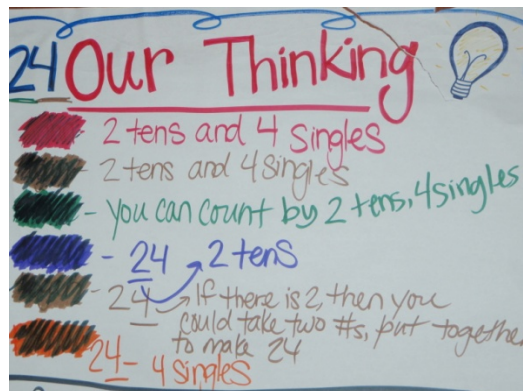 24 Our Thinking
2 tens and 4 singles
- 2 tens and 4 singles
- you can count by 2 tens, 4 singles
- 24 → 2 tens
- 24 → If there is 2, then you
could take two #s, put together
to make 24
24 - 4 singles